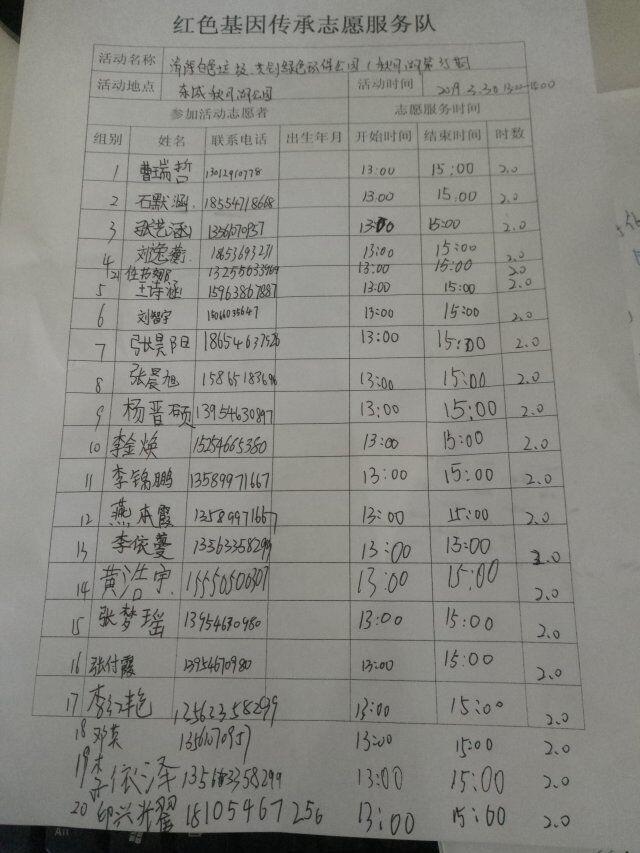 红色基因传承志愿服务队
活动名称 清理白色垃圾 共创绿色环保公园
活动地点 东城 公园 活动时间 2019.3.30 13:00-15:00
参加活动志愿者 志愿服务时间
组别 姓名 联系电话 出生年月 开始时间 结束时间 时数
1 曹瑞哲 13012910778 13:00 15:00 2.0
2 石默涵 18554718668 13:00 15:00 2.0
3 张艺涵 13561070957 13:00 15:00 2.0
4 刘逸蘅 13:00 15:00 2.0
21 13255633969 13:00 15:00 2.0
5 王诗涵 15963867887 13:00 15:00 2.0
6 刘智宇 15066035647 13:00 15:00 2.0
7 张昊阳 18654637526 13:00 15:00 2.0
8 张晨旭 15865183696 13:00 15:00 2.0
9 杨晋硕 13954630897 13:00 15:00 2.0
10 李金焕 15254665380 13:00 15:00 2.0
11 李锦鹏 13589971667 13:00 15:00 2.0
12 燕本霞 13589971667 13:00 15:00 2.0
13 李依蔓 13563358299 13:00 15:00 2.0
14 黄浩宇 15550506307 13:00 15:00 2.0
15 张梦瑶 13954670980 13:00 15:00 2.0
16 张付霞 13954670980 13:00 15:00 2.0
17 李红艳 13563358299 13:00 15:00 2.0
18 邓英 13561070957 13:00 15:00 2.0
19 李依泽 13563358299 13:00 15:00 2.0
20 印兴耀 18105467256 13:00 15:00 2.0